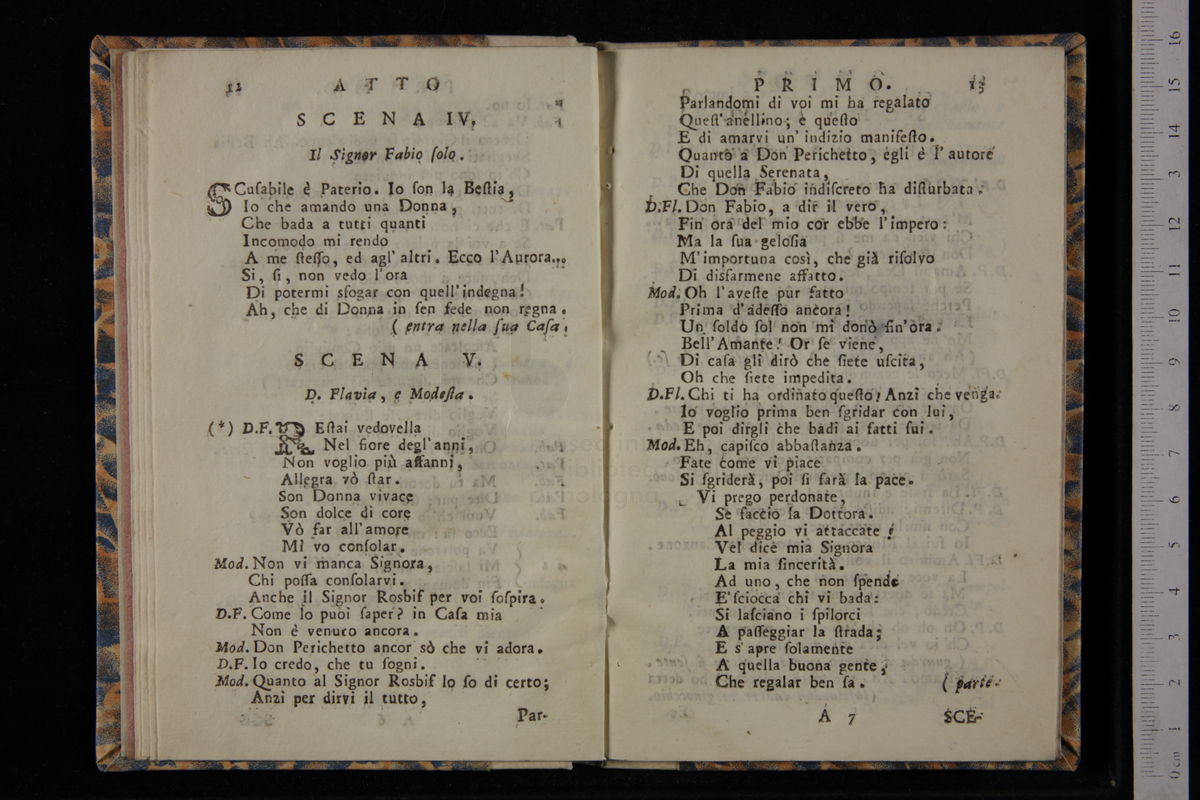 12 ATTO
SCENA IV.
Il Signor Fabio ſolo.
SCuſabile è Paterio. Io ſon la Beſtia,
Io che amando una Donna,
Che bada a tutti quanti
Incomodo mi rendo
A me ſteſſo, ed agl' altri. Ecco l'Aurora...
Si, ſi, non vedo l'ora
Di potermi sfogar con quell'indegna!
Ah, che di Donna in ſen fede non regna.
( entra nella ſua Caſa.
SCENA V.
D. Flavia, e Modeſta.
(*) D.F. REſtai vedovella
Nel fiore degl'anni,
Non voglio più affanni,
Allegra vò ſtar.
Son Donna vivace
Son dolce di core
Vò far all'amore
Mi vo conſolar.
Mod. Non vi manca Signora,
Chi poſſa conſolarvi.
Anche il Signor Rosbif per voi ſoſpira.
D.F. Come lo puoi ſaper? in Caſa mia
Non è venuto ancora.
Mod. Don Perichetto ancor sò che vi adora.
D.F. Io credo, che tu ſogni.
Mod. Quanto al Signor Rosbif lo ſo di certo;
Anzi per dirvi il tutto,
Par-
PRIMO. 13
Parlandomi di voi mi ha regalato
Queſt'anéllino; e queſto
E di amarvi un' indizio manifeſto.
Quanto a Don Perichetto, egli è l'autore
Di quella Serenata,
Che Don Fabio indiſcreto ha diſturbata.
D.Fl. Don Fabio, a dir il vero,
Fin ora del mio cor ebbe l'impero:
Ma la ſua geloſia
M'importuna così, che già riſolvo
Di disfarmene affatto.
Mod. Oh l'aveſte pur fatto
Prima d'adeſſo ancora!
Un ſoldo ſol non mi donò ſin'ora.
Bell'Amante! Or ſe viene,
Di caſa gli dirò che ſiete uſcita,
Oh che ſiete impedita.
D.Fl. Chi ti ha ordinato queſto? Anzi che venga.
Io voglio prima ben ſgridar con lui,
E poi dirgli che badi ai fatti ſui.
Mod. Eh, capiſco abbaſtanza.
Fate come vi piace
Si ſgriderà, poi ſi farà la pace.
Vi prego perdonate,
Se faccio la Dottora.
Al peggio vi attaccate
Vel dice mia Signora
La mia ſincerità.
Ad uno, che non ſpende
E'ſciocca chi vi bada:
Si laſciano i ſpilorci
A paſſeggiar la ſtrada;
E s'apre ſolamente
A quella buona gente,
Che regalar ben ſa. ( parte.
A 7 SCE-